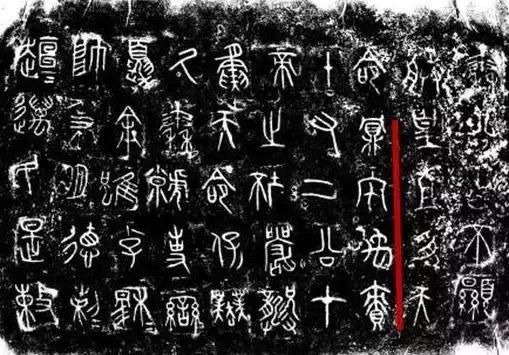 秦公曰不顯
朕皇且受天
命鼏宅禹責
十又二公才
帝之坏嚴龏
夤天命保業
氒秦虩事蠻
夏余雖小子穆=
帥秉明德剌=
趄=萬民是敕